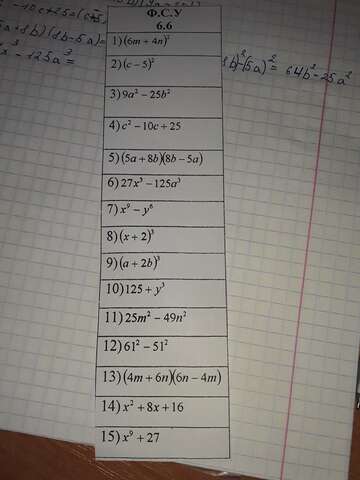 Ф.С.У
6.6
1) (6m + 4n)²
2) (c − 5)²
3) 9a² − 25b²
4) c² − 10c + 25
5) (5a + 8b)(8b − 5a)
6) 27x³ − 125a³
7) x⁹ − y⁶
8) (x + 2)³
9) (a + 2b)³
10) 125 + y³
11) 25m² − 49n²
12) 61² − 51²
13) (4m + 6n)(6n − 4m)
14) x² + 8x + 16
15) x⁹ + 27
b)²−(5a)² = 64b² − 25a²
x³ − 125a³ =